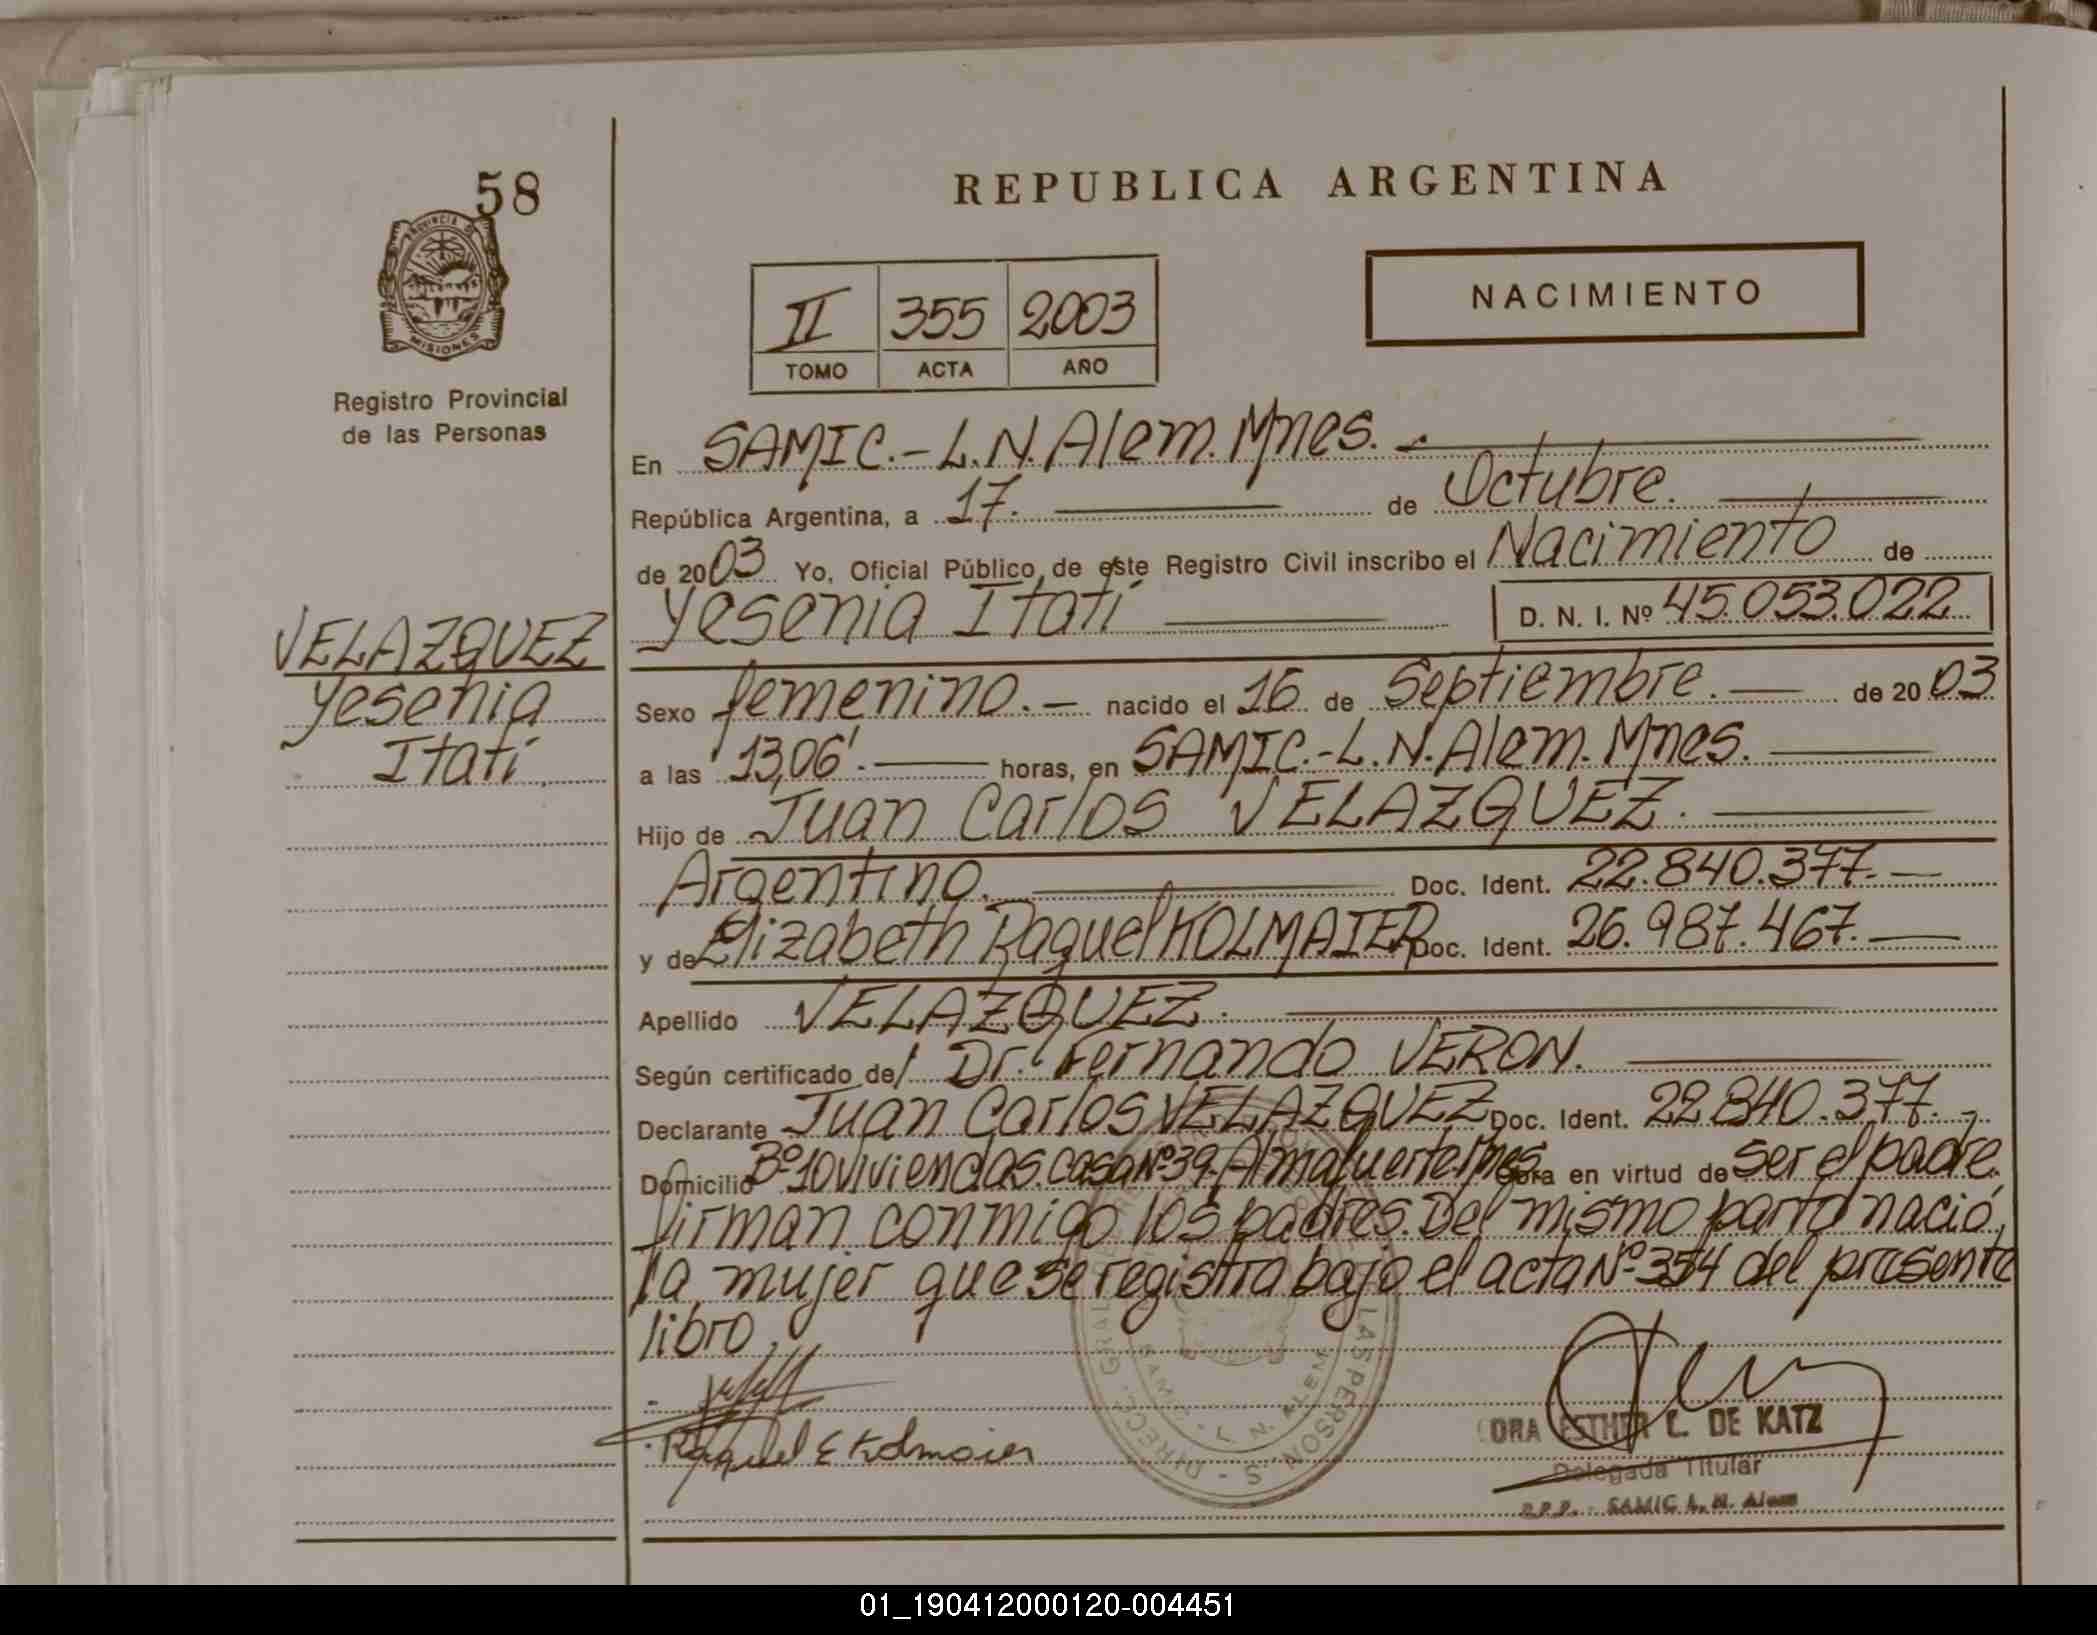 58
PROVINCIA DE
MISIONES
Registro Provincial
de las Personas
VELAZQUEZ
Yesenia
Itatí
REPUBLICA ARGENTINA
II 355 2003
TOMO ACTA AÑO
NACIMIENTO
En SAMIC.- L.N. Alem. Mnes. -
República Argentina, a 17. de Octubre.
de 2003 Yo, Oficial Público, de este Registro Civil inscribo el Nacimiento de
Yesenia Itatí D. N. I. Nº 45.053.022
Sexo femenino.- nacido el 16 de Septiembre. de 2003
a las 13,06'. horas, en SAMIC.-L.N. Alem. Mnes.
Hijo de Juan Carlos VELAZQUEZ.
Argentino. Doc. Ident. 22.840.377.-
y de Elizabeth Raquel KOLMAIER Doc. Ident. 26.987.467.-
Apellido VELAZQUEZ.
Según certificado del Dr. Fernando VERON.
Declarante Juan Carlos VELAZQUEZ Doc. Ident. 22.840.377.-
Domicilio Bº 10 viviendas. Casa Nº 39. Almafuerte. Mnes. Obra en virtud de ser el padre.
firman conmigo los padres. Del mismo parto nació,
la mujer que se registra bajo el acta Nº 354 del presente
libro.
Raquel E Kolmaier
DORA ESTHER L. DE KATZ
Delegada Titular
R.P.P. - SAMIC L. N. Alem
01_190412000120-004451